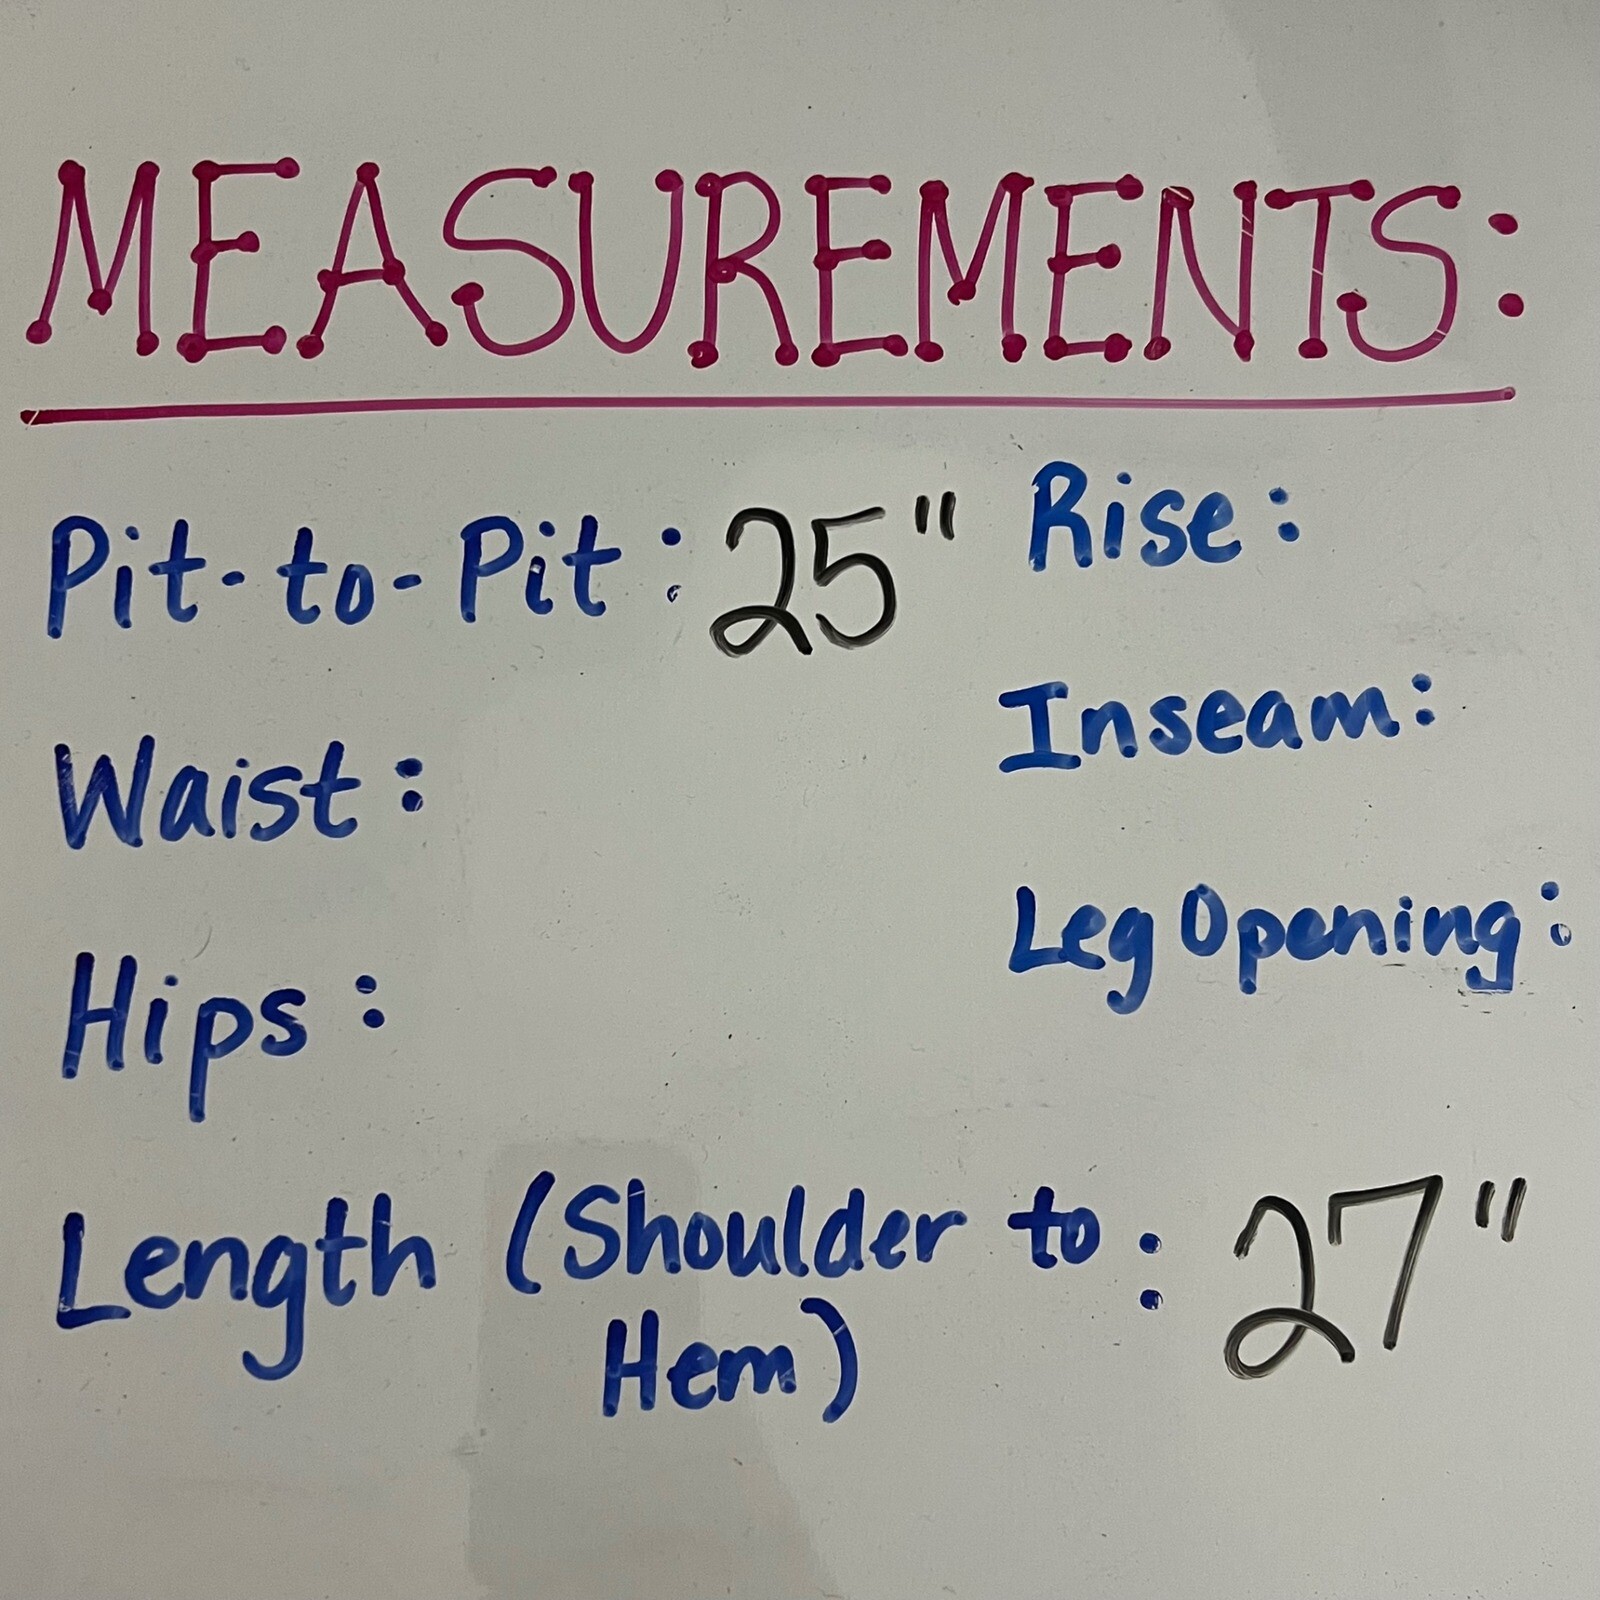 MEASUREMENTS:
Pit-to-Pit: 25"
Rise:
Waist:
Inseam:
Hips:
Leg Opening:
Length (Shoulder to : 27"
Hem)